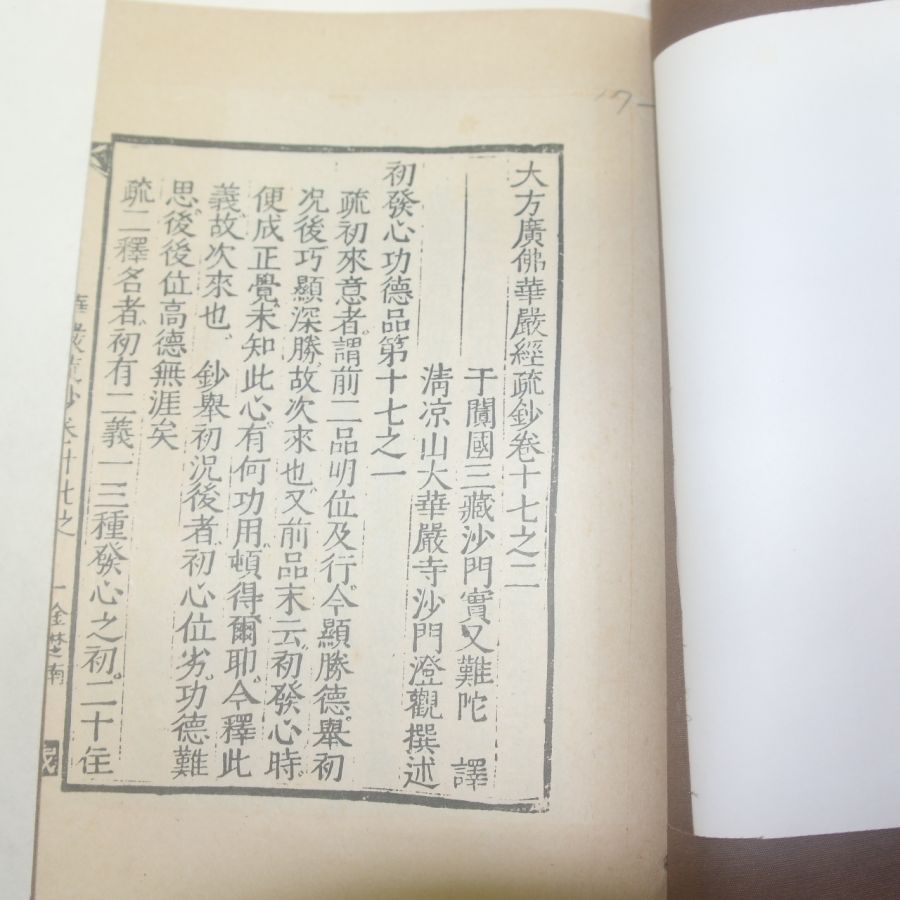 大方廣佛華嚴經疏鈔卷十七之二
于闐國三藏沙門實叉難陀 譯
清凉山大華嚴寺沙門澄觀撰述
初發心功德品第十七之一
疏初來意者。謂前二品明位及行。今顯勝德。舉初
况後巧顯深勝。故次來也。又前品末云。初發心時。
便成正覺。未知此心有何功用。頓得爾耶。今釋此
義。故次來也。 鈔舉初況後者。初心位劣。功德難
思。後後位高德無涯矣
疏二釋名者。初有二義一三種發心之初。二十住
華嚴疏鈔卷十七之
一 金楚南